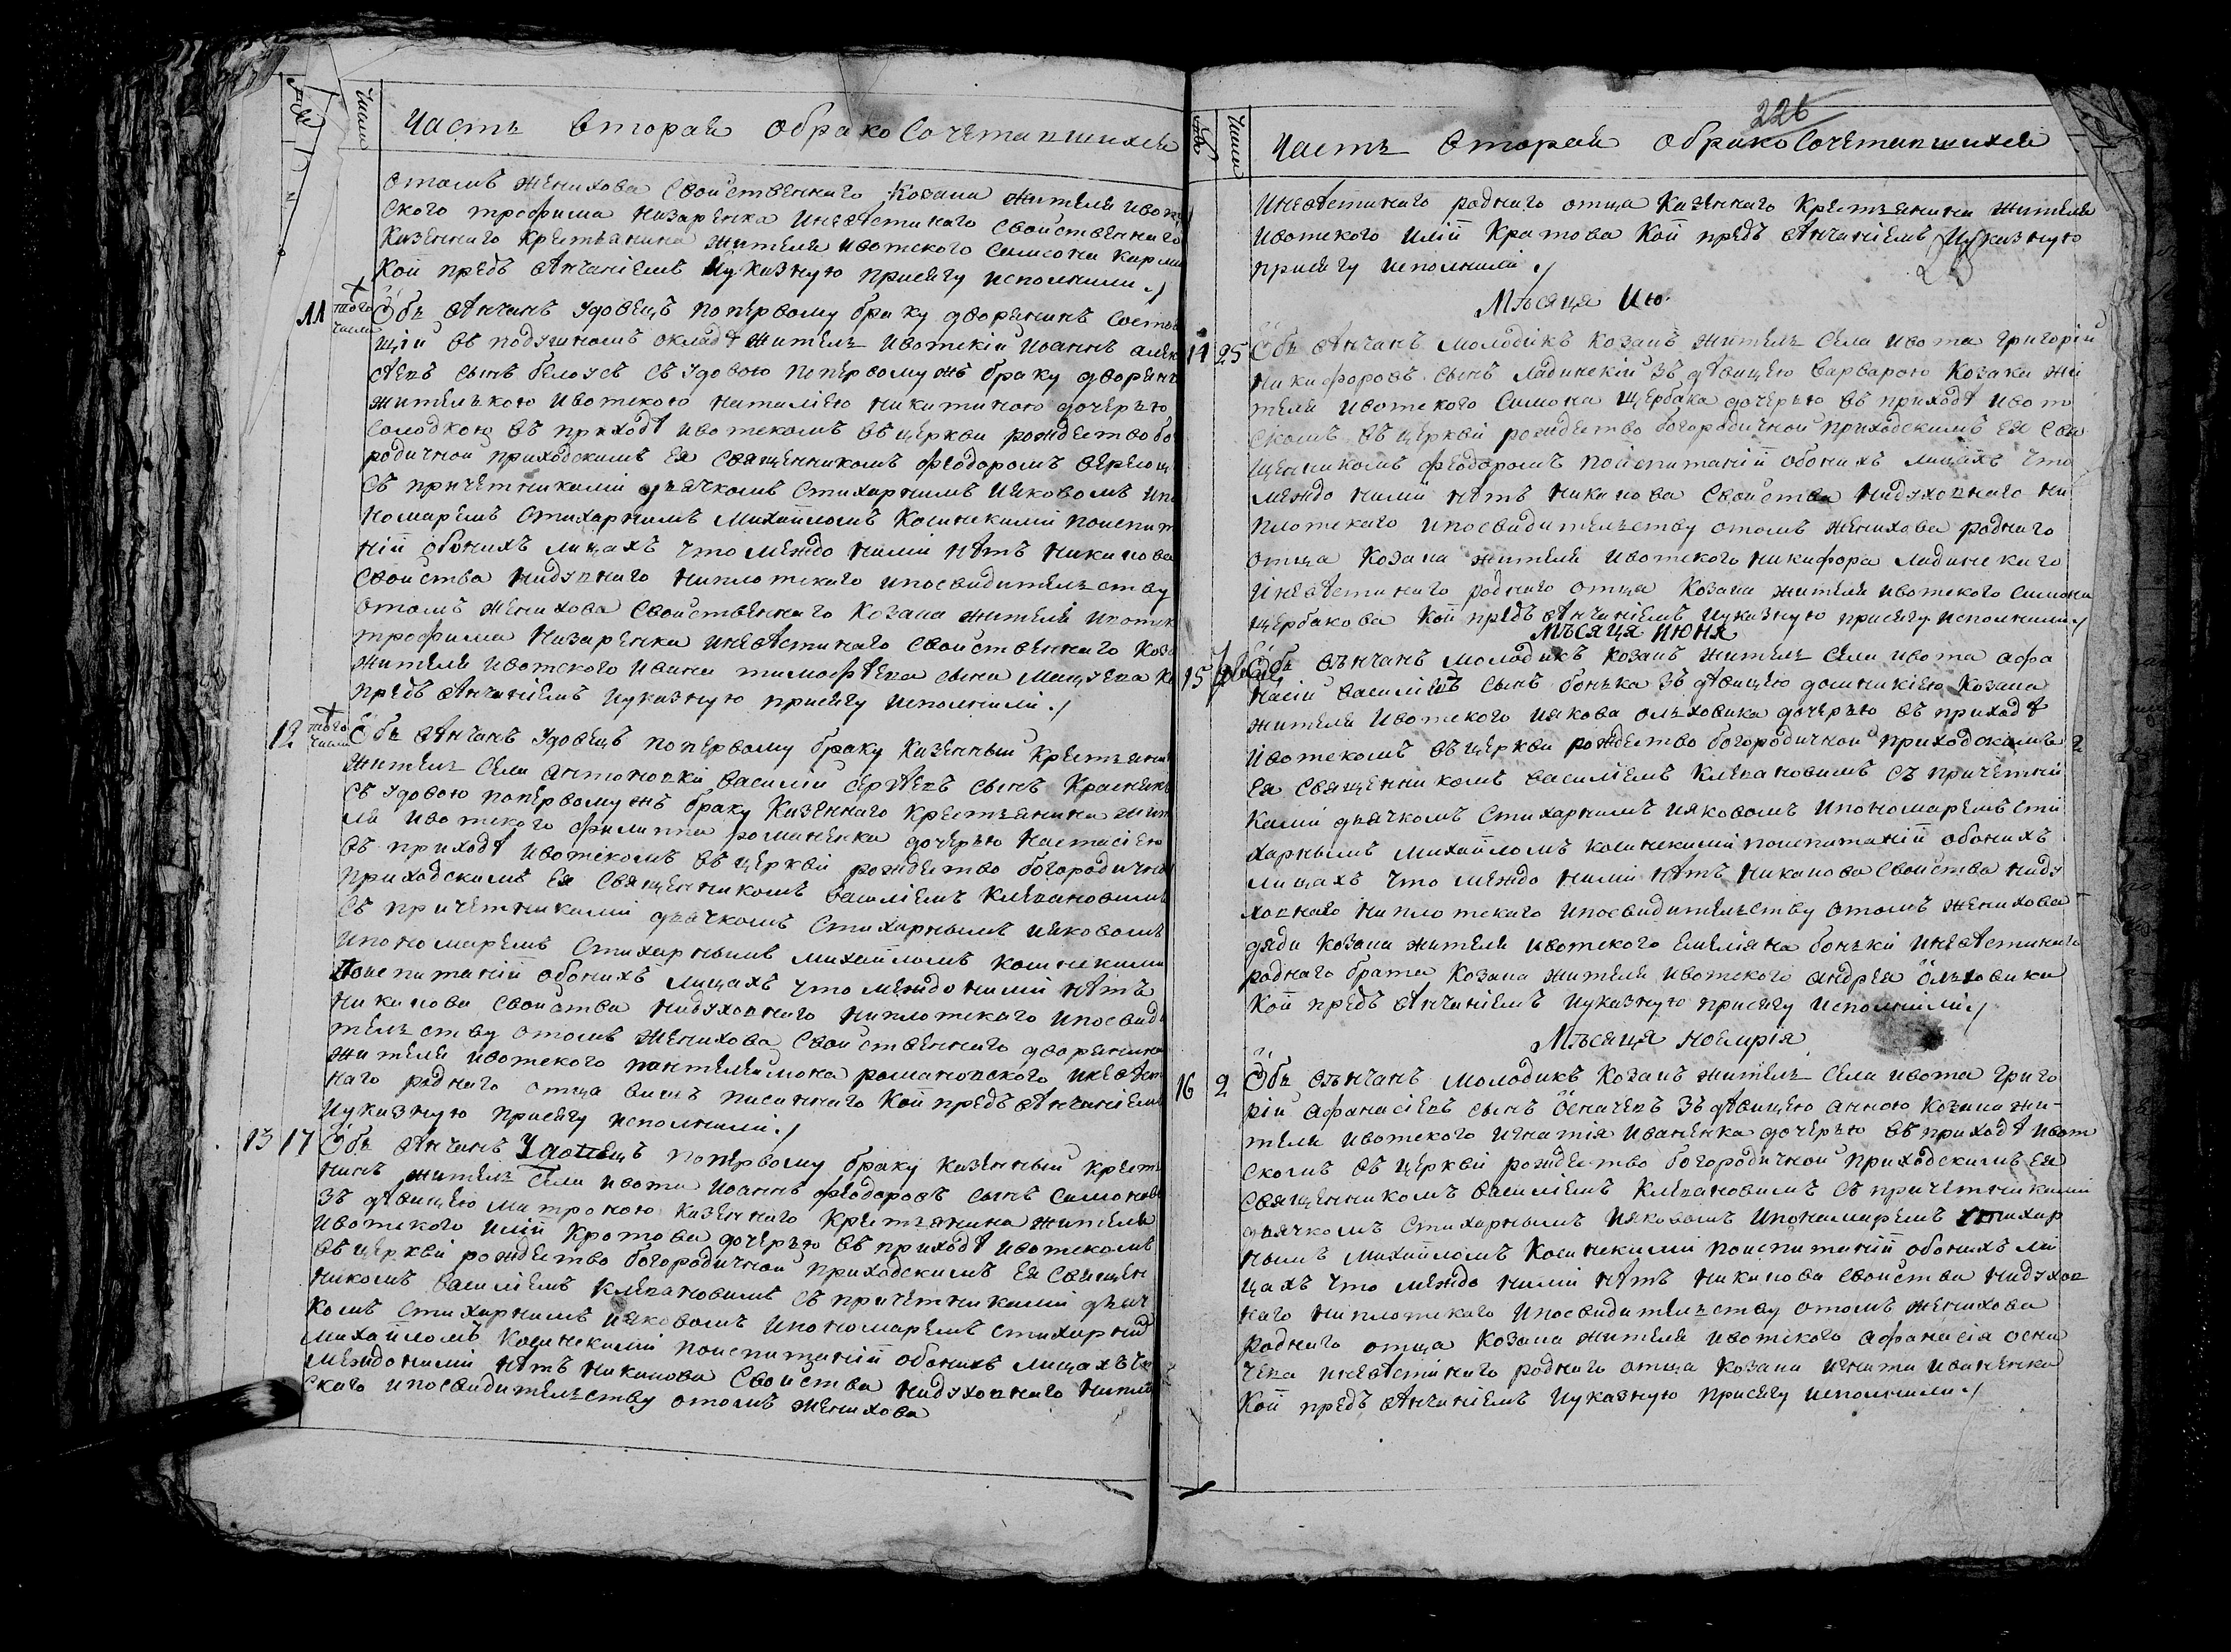 Числа
Часть вторая обрако сочетавшихся
отомъ женихова свойственнаго козака жителя ивот
ского трофима назаренка иневѣстинаго свойственнаго
казеннаго крестьянина жителя ивотского самсона
кои предъ вѣнчаніемъ иуказную присягу исполнили
11 того числа Объ вѣнчанъ удовецъ попервому браку дворянинъ состоя
щій въ подушномъ окладѣ житель ивотскій иоаннъ алек
сѣевъ сынъ белоусъ съ удовою попервомужъ браку дворянк
жителькою ивотскою наталіею никитиною дочерью
солодкою въ приходѣ ивотскомъ въ церкви рождество бо
родичной приходскимъ ея священникомъ феодоромъ
съ причетниками дьячкомъ стихарнимъ иаковомъ ипо
номаремъ стихарнимъ михайломъ косинскими поиспита
нiи обоихъ лицахъ что междо ними нѣтъ никакова
свойства нидуховнаго ниплотскаго ипосвидительству
отомъ женихова свойственнаго козака жителя ивотск
трофима назаренка иневѣстинаго свойственнаго коза
жителя ивотского ивана тимофѣева сына мацуева ко
предъ вѣнчаніемъ иуказную присягу исполнили
12 того числа Объ вѣнчанъ удовецъ попервому браку казенный крестьянин
житель села антоновки василій сергѣевъ сынъ
съ удовою попервомужъ браку казеннаго крестьянина жит
ля ивотского филиппа романенка дочерью настасіею
въ приходѣ ивотскомъ въ церкви рождество богородичной
приходскимъ ея священникомъ василіемъ клевановимъ
съ причетниками дьячкомъ стихарнымъ иаковомъ
ипономаремъ стихарнымъ михайломъ косинскими
поиспитаніи обоихъ лицахъ что междо ними нѣтъ
никакова свойства нидуховнаго ниплотскаго ипосвиди
тельству отомъ женихова свойственнаго дворянина
жителя ивотского пантелеимона романовского иневѣсти
наго роднаго отца вишъ писаннаго кои предъ вѣнчаніемъ
иуказную присягу исполнили
13 17 Объ вѣнчанъ удовецъ попервому браку казенный крестья
нинъ житель села ивота иоаннъ феодоровъ сынъ симонов
зъ дѣвицею матроною казеннаго крестьянина жителя
ивотского иліи кротова дочерью въ приходѣ ивотскомъ
въ церкви рождество богородичной приходскимъ ея священ
никомъ василіемъ клевановимъ съ причетниками дьяч
комъ стихарнимъ иаковомъ ипономаремъ стихарним
михайломъ косинскими поиспитаніи обоихъ лицахъ что
междо ними нѣтъ никакова свойства нидуховнаго нипло
скаго ипосвидительству отомъ женихова
226
Числа
Часть вторая обрако сочетавшихся
иневѣстинаго роднаго отца казеннаго крестьянина жителя
ивотского иліи кротова кои предъ вѣнчаніемъ иуказную
присягу исполнили
Мѣсяца Ию
14 25 Объ вѣнчанъ молодикъ козакъ житель села ивота григорій
никифоровъ сынъ ладинскій зъ дѣвицею варварою козака жи
теля ивотского симона щербака дочерью въ приходѣ ивот
скомъ въ церкви рождество богородичной приходскимъ ея свя
щенникомъ феодоромъ поиспитаніи обоихъ лицахъ что
междо ними нѣтъ никакова свойства нидуховнаго ни
плотскаго ипосвидительству отомъ женихова роднаго
отца козака жителя ивотского никифора ладинскаго
иневѣстинаго роднаго отца козака жителя ивотского симона
щербакова кои предъ вѣнчаніемъ иуказную присягу исполнили
Мѣсяца июня
15 Объ вѣнчанъ молодикъ козакъ житель села ивота афа
насій василіевъ сынъ бонька зъ дѣвицею домникіею козака
жителя ивотского иакова ольховика дочерью въ приходѣ
ивотскомъ въ церкви рождество богородичной приходскимъ
ея священникомъ василіемъ клевановимъ съ причетни
ками дьячкомъ стихарнимъ иаковомъ ипономаремъ сти
харнымъ михайломъ косинскими поиспитаніи обоихъ
лицахъ что междо ними нѣтъ никакова свойства ниду
ховнаго ниплотскаго ипосвидительству отомъ женихова
дяди козака жителя ивотского емеляна боньки иневѣстинаго
роднаго брата козака жителя ивотского андрея ольховика
кои предъ вѣнчаніемъ иуказную присягу исполнили
Мѣсяца ноемрія
16 2 Объ вѣнчанъ молодикъ козакъ житель села ивота григо
рій афанасіевъ сынъ осначевъ зъ дѣвицею анною козака жи-
теля ивотского игнатія иваненка дочерью въ приходѣ ивот
скомъ въ церкви рождество богородичной приходскимъ ея
священникомъ василіемъ клевановимъ съ причетниками
дьячкомъ стихарнымъ иаковомъ ипонамаремъ стихар
нымъ михайломъ косинскими поиспитаніи обоихъ ли
цахъ что междо ними нѣтъ никакова свойства нидухов
наго ниплотскаго ипосвидительству отомъ женихова
роднаго отца козака жителя ивотского афанасія осна
чева иневѣстинаго роднаго отца козака игната иваненка
кои предъ вѣнчаніемъ иуказную присягу исполнили